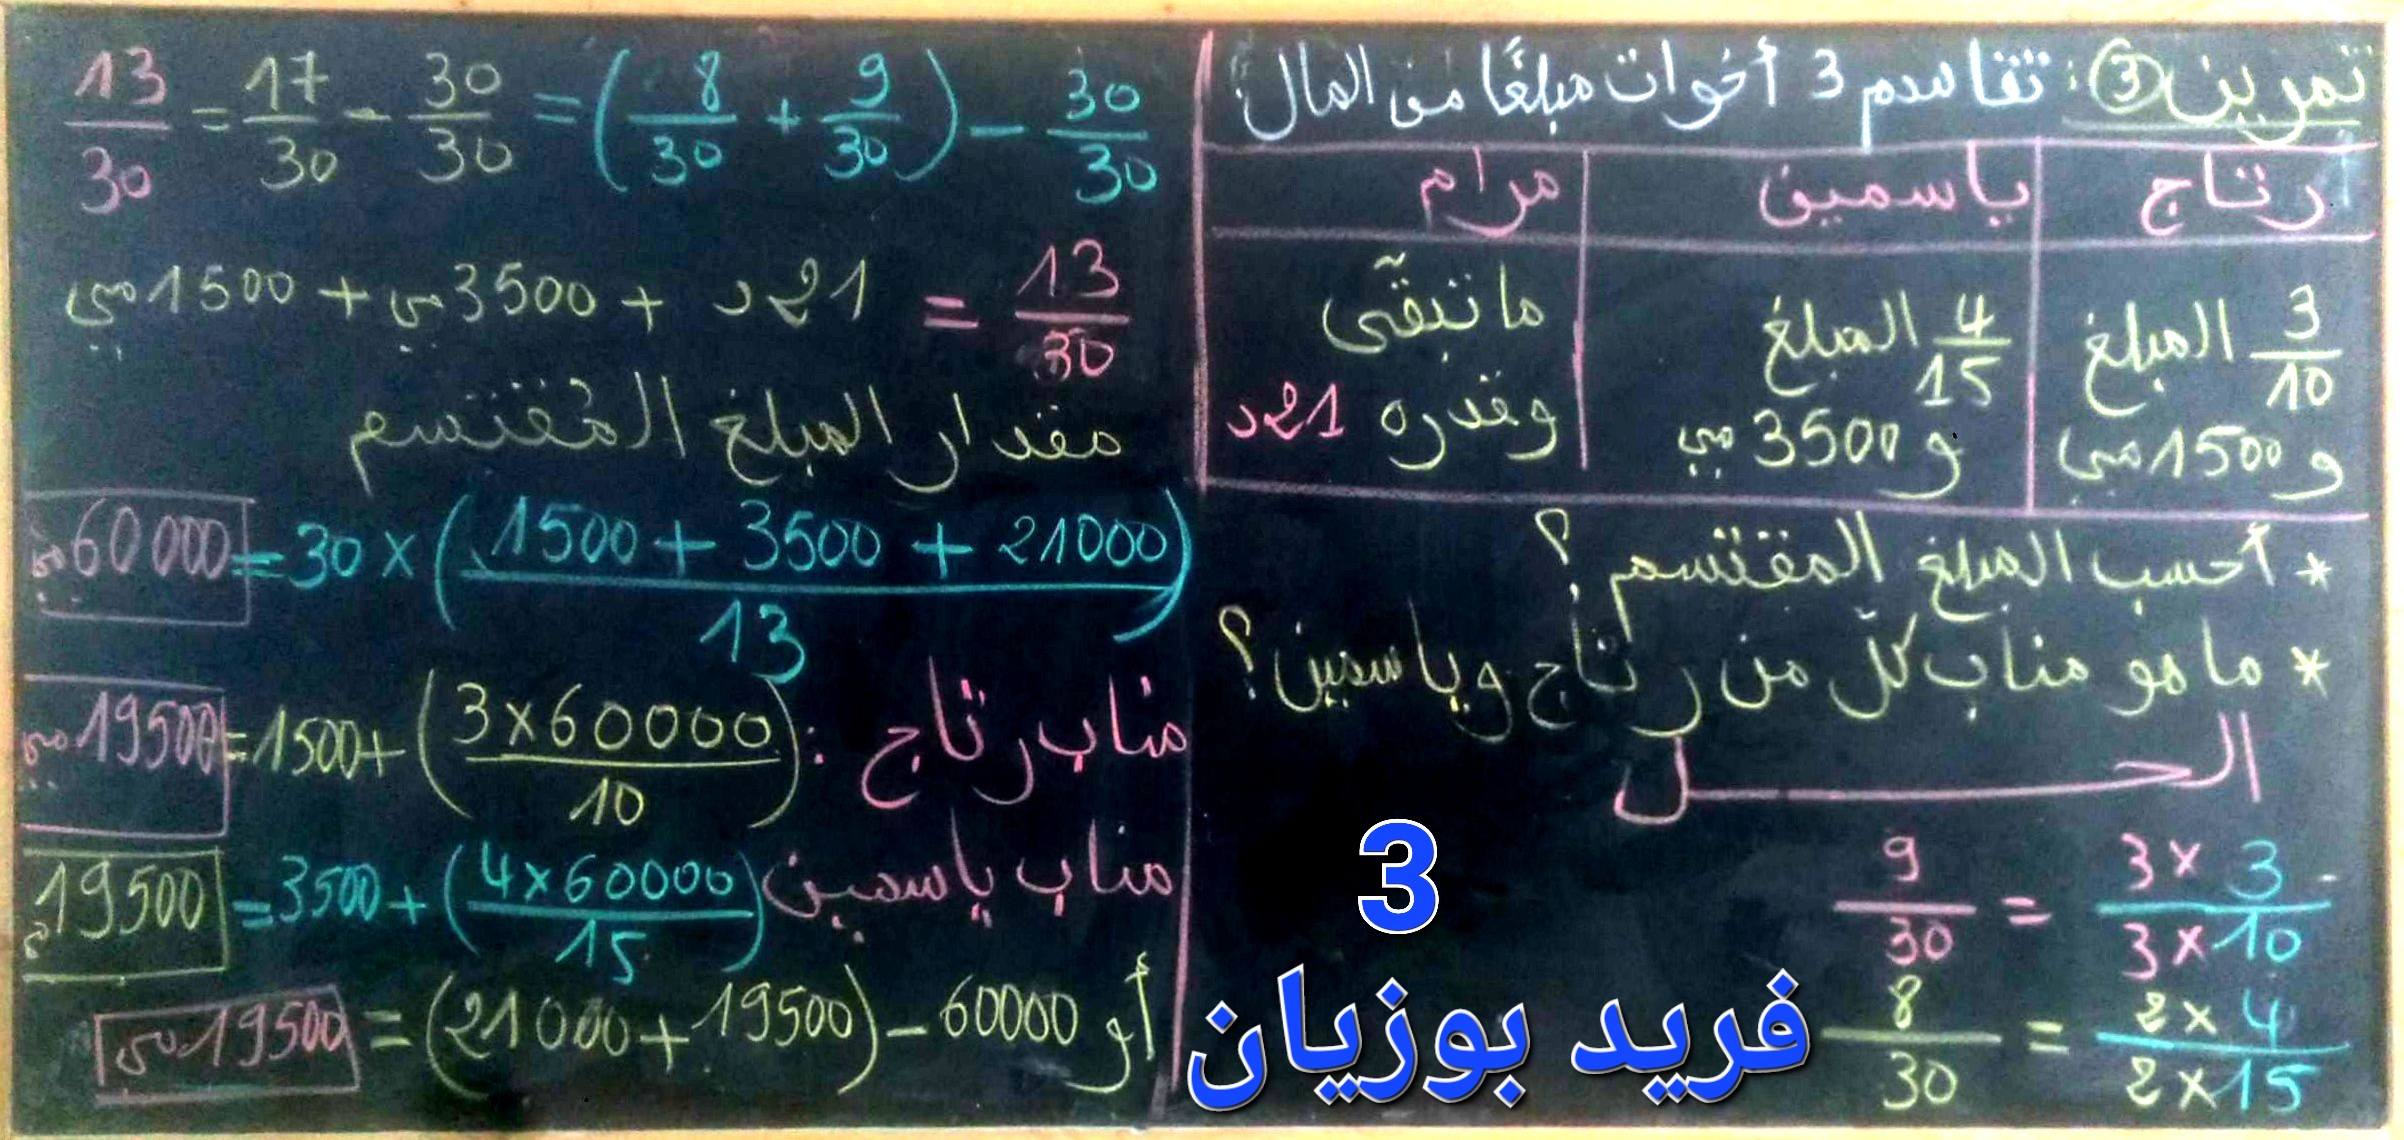 تمرين ③: تقاسم 3 أخوات مبلغًا من المال:
رتاج ياسمين مرام
3/10 المبلغ و 1500 مي
4/15 المبلغ و 3500 مي
ما تبقّى وقدره 21 د
* أحسب المبلغ المقتسم؟
* ما هو مناب كلّ من رتاج وياسمين؟
الحــل
9/30 = 3×3 / 3×10
8/30 = 2×4 / 2×15
13/30 = 17/30 - 30/30 = (8/30 + 9/30) - 30/30
1500 مي + 3500 مي + 21 د = 13/30
مقدار المبلغ المُقتسم
60 000 مي = 30 × (1500 + 3500 + 21000 / 13)
مناب رتاج : (3×60000 / 10) + 1500 = 19500 مي
مناب ياسمين (4×60000 / 15) + 3500 = 19500 مي
أو 60000 - (21000 + 19500) = 19500 مي
3
فريد بوزيان